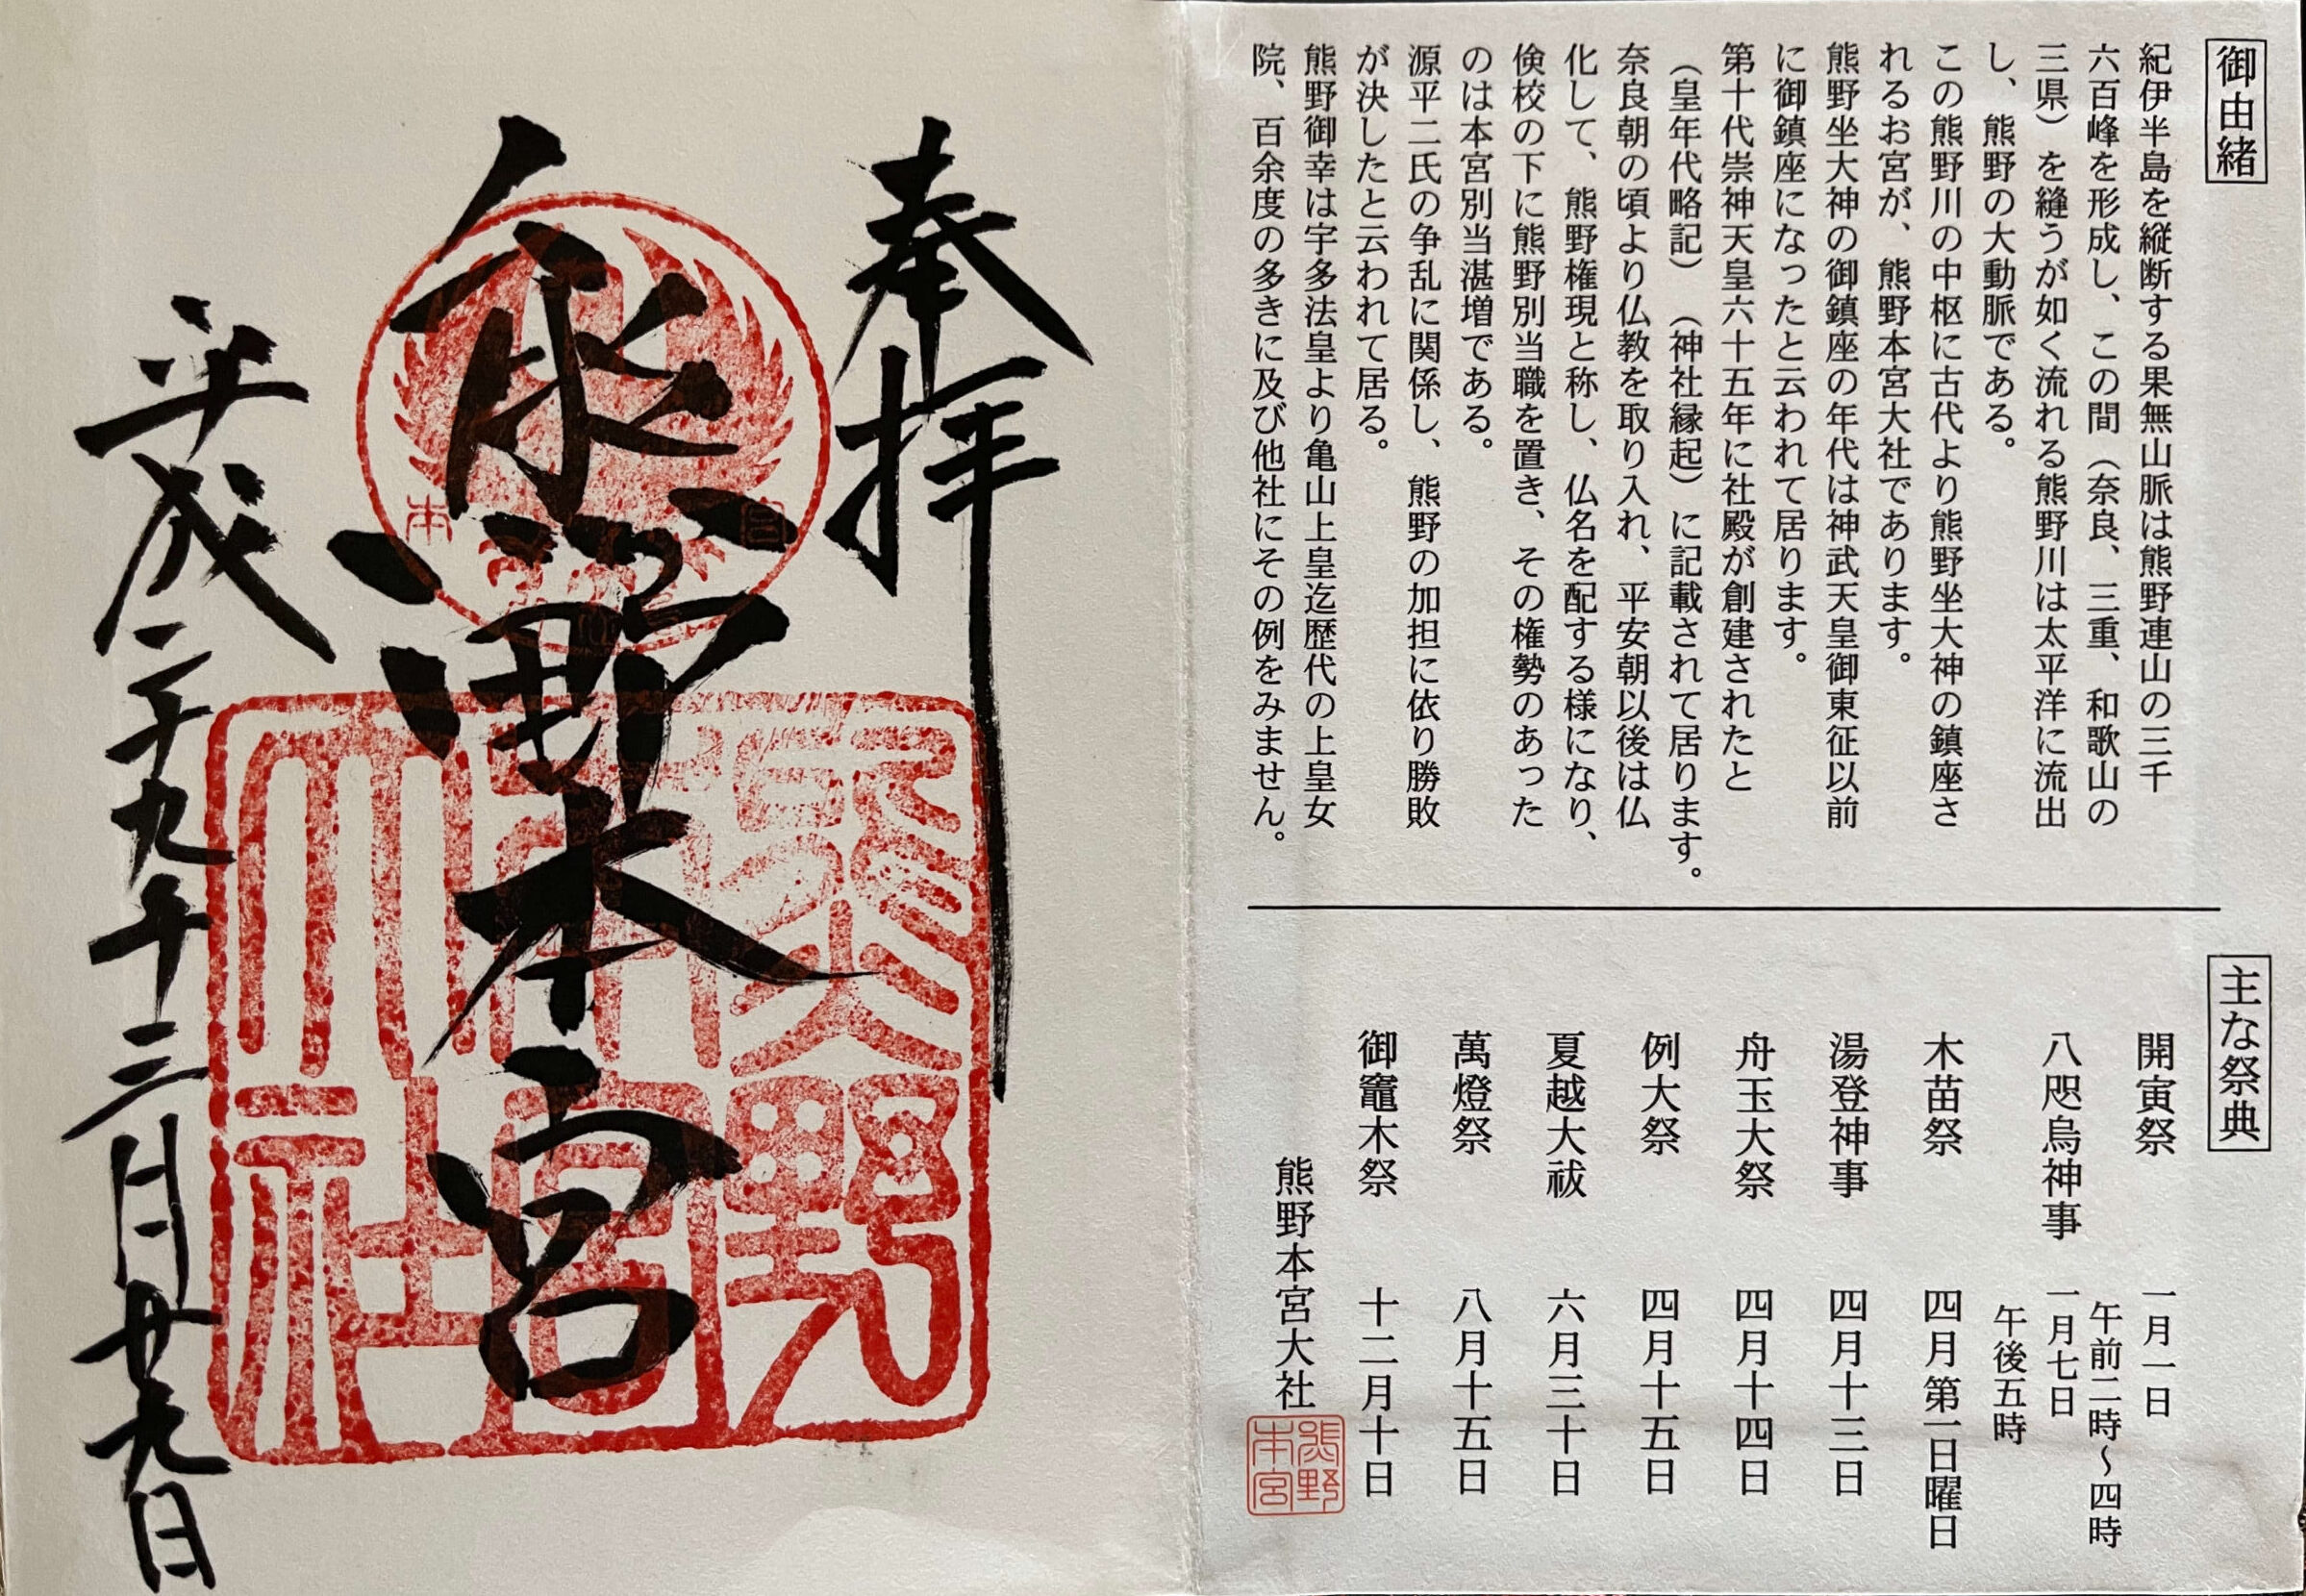 御由緒
紀伊半島を縦断する果無山脈は熊野連山の三千
六百峰を形成し、この間（奈良、三重、和歌山の
三県）を縫うが如く流れる熊野川は太平洋に流出
し、熊野の大動脈である。
この熊野川の中枢に古代より熊野坐大神の鎮座さ
れるお宮が、熊野本宮大社であります。
熊野坐大神の御鎮座の年代は神武天皇御東征以前
に御鎮座になったと云われて居ります。
第十代崇神天皇六十五年に社殿が創建されたと
（皇年代略記）（神社縁起）に記載されて居ります。
奈良朝の頃より仏教を取り入れ、平安朝以後は仏
化して、熊野権現と称し、仏名を配する様になり、
倹校の下に熊野別当職を置き、その権勢のあった
のは本宮別当湛増である。
源平二氏の争乱に関係し、熊野の加担に依り勝敗
が決したと云われて居る。
熊野御幸は宇多法皇より亀山上皇迄歴代の上皇女
院、百余度の多きに及び他社にその例をみません。
主な祭典
開寅祭 一月一日
午前二時～四時
八咫烏神事 一月七日
午後五時
木苗祭 四月第一日曜日
湯登神事 四月十三日
舟玉大祭 四月十四日
例大祭 四月十五日
夏越大祓 六月三十日
萬燈祭 八月十五日
御竈木祭 十二月十日
熊野本宮大社
熊野
本宮
奉拝
熊野本宮
平成二十九年三月廿九日
日本
熊野
本宮
大社